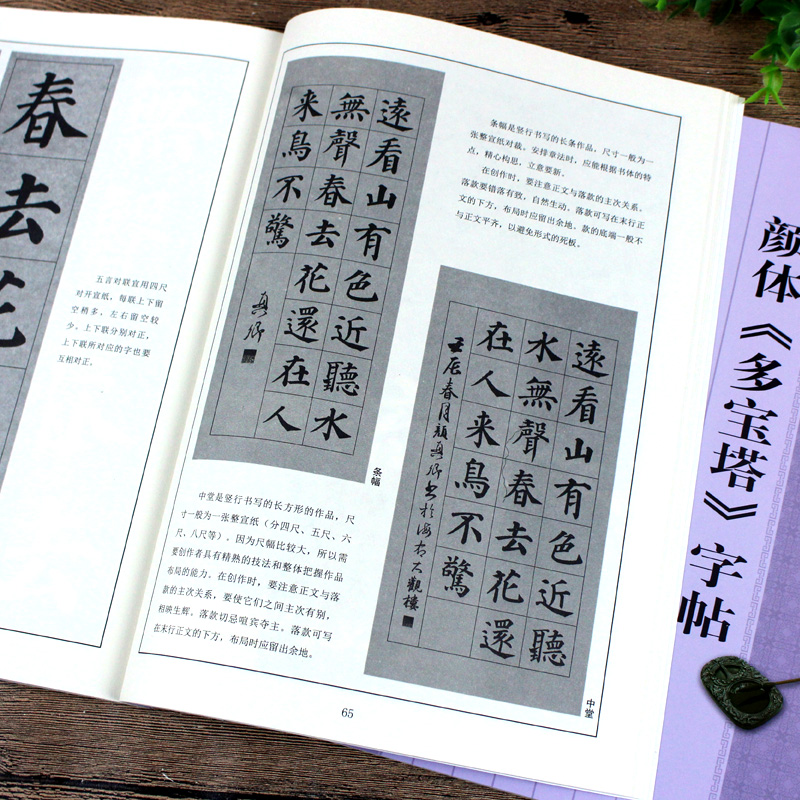 春去花
五言对联宜用四尺
对开宣纸，每联上下留
空稍多，左右留空较
少。上下联分别对正，
上下联所对应的字也要
互相对正。
遠看山有色近聽水
無聲春去花還在人
来鳥不驚
真卿
条幅
条幅是竖行书写的长条作品，尺寸一般为一
张整宣纸对裁。安排章法时，应能根据书体的特
点，精心构思，立意要新。
在创作时，要注意正文与落款的主次关系。
落款要错落有致，自然生动。落款可写在末行正
文的下方，布局时应留出余地、款的底端一般不
与正文平齐，以避免形式的死板。
中堂是竖行书写的长方形的作品，尺
寸一般为一张整宣纸（分四尺、五尺、六
尺、八尺等）。因为尺幅比较大，所以需
要创作者具有精熟的技法和整体把握作品
布局的能力。在创作时，要注意正文与落
款的主次关系，要使它们之间主次有别，
相映生辉。落款切忌喧宾夺主。落款可写
在末行正文的下方，布局时应留出余地。
遠看山有色近聽
水無聲春去花還
在人来鳥不驚
壬辰春月顔真卿书於海右大觀樓
中堂
65
颜体《多宝塔》字帖